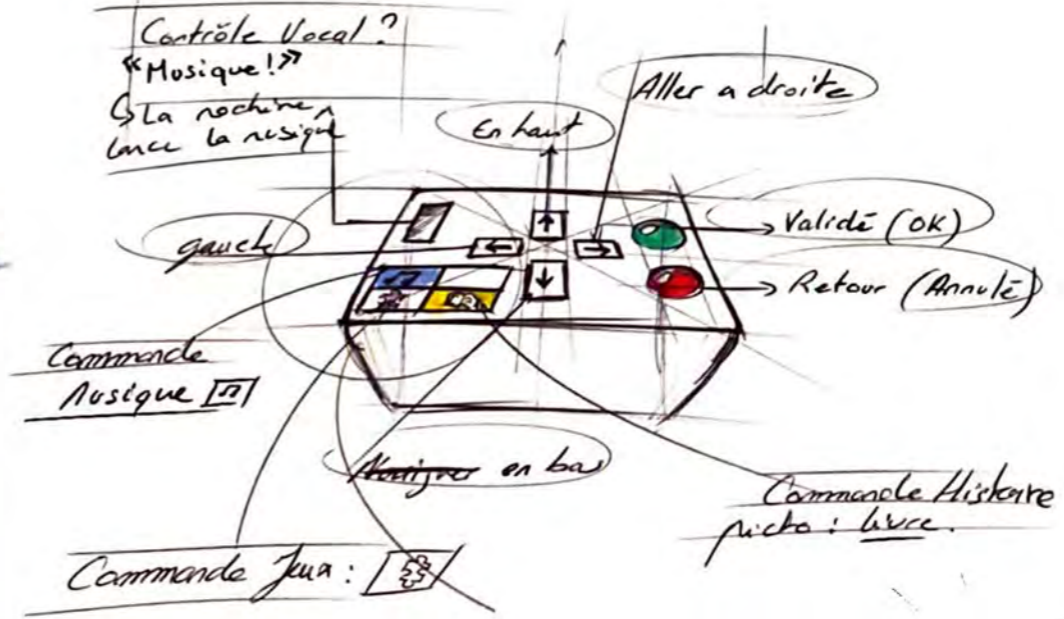 Contrôle Vocal ?
"Musique !"
↳ La machine
lance la musique
En haut
Aller a droite
gauche
Validé (OK)
Retour (Annulé)
Commande
Musique
Naviguer en bas
Commande Histoire
picto : livre.
Commande Jeux :